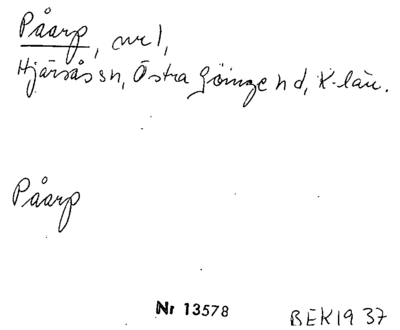 Påarp, nr 1,
Hjärsås sn, Östra Göinge hd, K-län.
Påarp
Nr 13578
BEK19 37